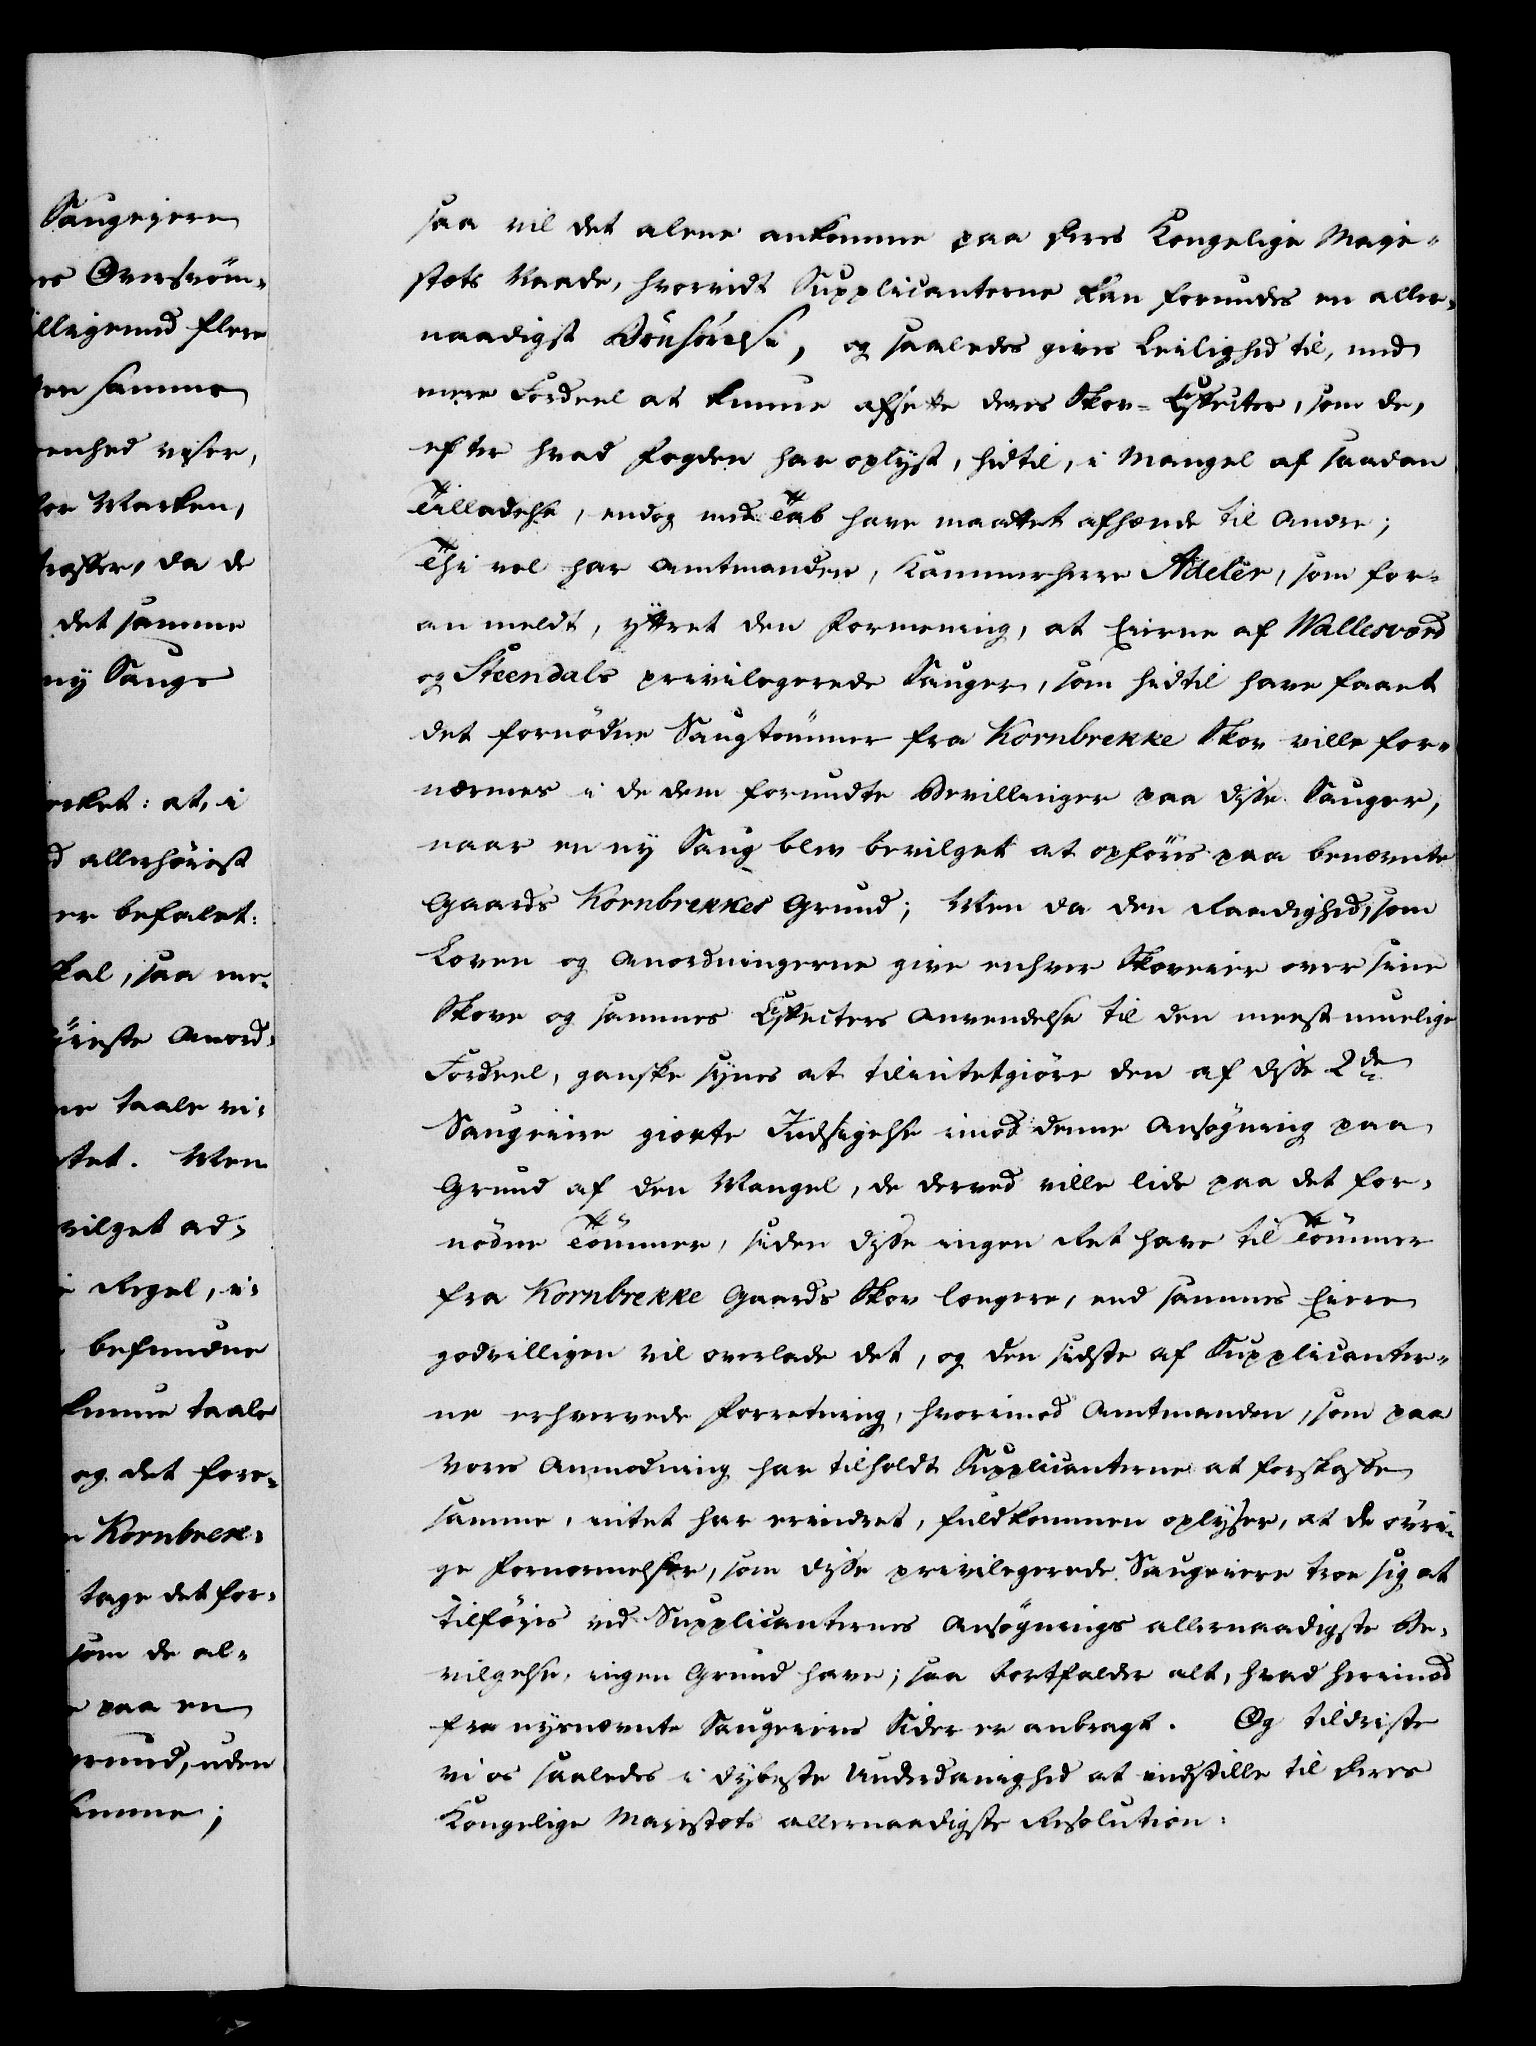 Saugeiere
res Oversvöm-
illigemed flere
ten samme
eenhed viser,
for Marken,
træffer, da de
det samme
ny Saugs
ærket: at, i
d allerhöiest
er befalet:
skal, saa me-
höieste Anord-
ne taale vi-
tet. Men
vilget ad-
i Regel, vi
befundne
kunne taale
og det fore-
n Kornbrek-
tage det for-
som de al-
e paa en
grund, uden
komme;
saa vil det alene ankomme paa Deres Kongelige Maje-
stæts Naade, hvorvidt Supplicanterne kan forundes en aller-
naadigst Bönhörelse, og saaledes gives Leilighed til, med
mere Fordeel at kunne afsætte deres Skov-Effecter, som de,
efter hvad Fogden har oplyst, hidtil, i Mangel af saadan
Tilladelse, endog med Tab have maattet afhænde til Andre;
Thi vel har Amtmanden, Kammerherre Adeler, som for-
an meldt, yttret den Formening, at Eierne af Wallesværd
og Steendals privilegerede Sauger, som hidtil have faaet
det fornödne Saugtömmer fra Kornbrekke Skov ville for-
nærmes i de dem forundte Bevillinger paa disse Sauger,
naar en ny Saug blev bevilget at opföres paa benævnte
Gaards Kornbrekkes Grund; Men da den Raadighed, som
Loven og Anordningerne give enhver Skoveier over sine
Skove og sammes Effecters Anvendelse til den meest muelige
Fordeel, ganske synes at tilintetgiöre den af disse 2de
Saugeiere giorte Indsigelse imod denne Ansögning paa
Grund af den Mangel, de derved ville lide paa det for-
nödne Tömmer, siden disse ingen Ret have til Tömmer
fra Kornbrekke Gaards Skov længere, end sammes Eiere
godvilligen vil overlade det, og den sidste af Supplicanter-
ne erhvervede Forretning, hvorimod Amtmanden, som paa
vores Anmodning har tilholdt Supplicanterne at forskaffe
samme, intet har erindret, fuldkommen oplyser, at de övri-
ge Fornærmelser, som disse privilegerede Saugeiere troe sig at
tilföies ved Supplicanternes Ansögnings allernaadigste Be-
vilgelse, ingen Grund have; saa bortfalder alt, hvad herimod
fra nysnævnte Saugeieres Sider er anbragt. Og tildriste
vi os saaledes i dybeste Underdanighed at indstille til Deres
Kongelige Majestæts allernaadigste Resolution: